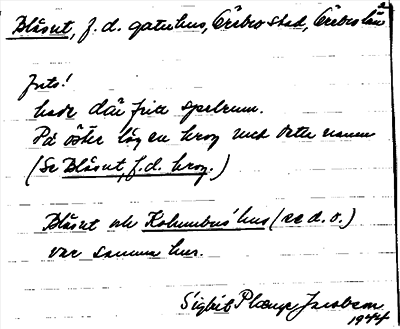 Blåsut, f.d. gatuhus, Örebro stad, Örebro län
Inte!
hade där fritt spelrum.
På öster låg en krog med detta namn
(Se Blåsut, f.d. krog.)
Blåsut och Kolumbus' hus (se d. o.)
var samma hus.
Sigbrit Plænge Jacobson
1944